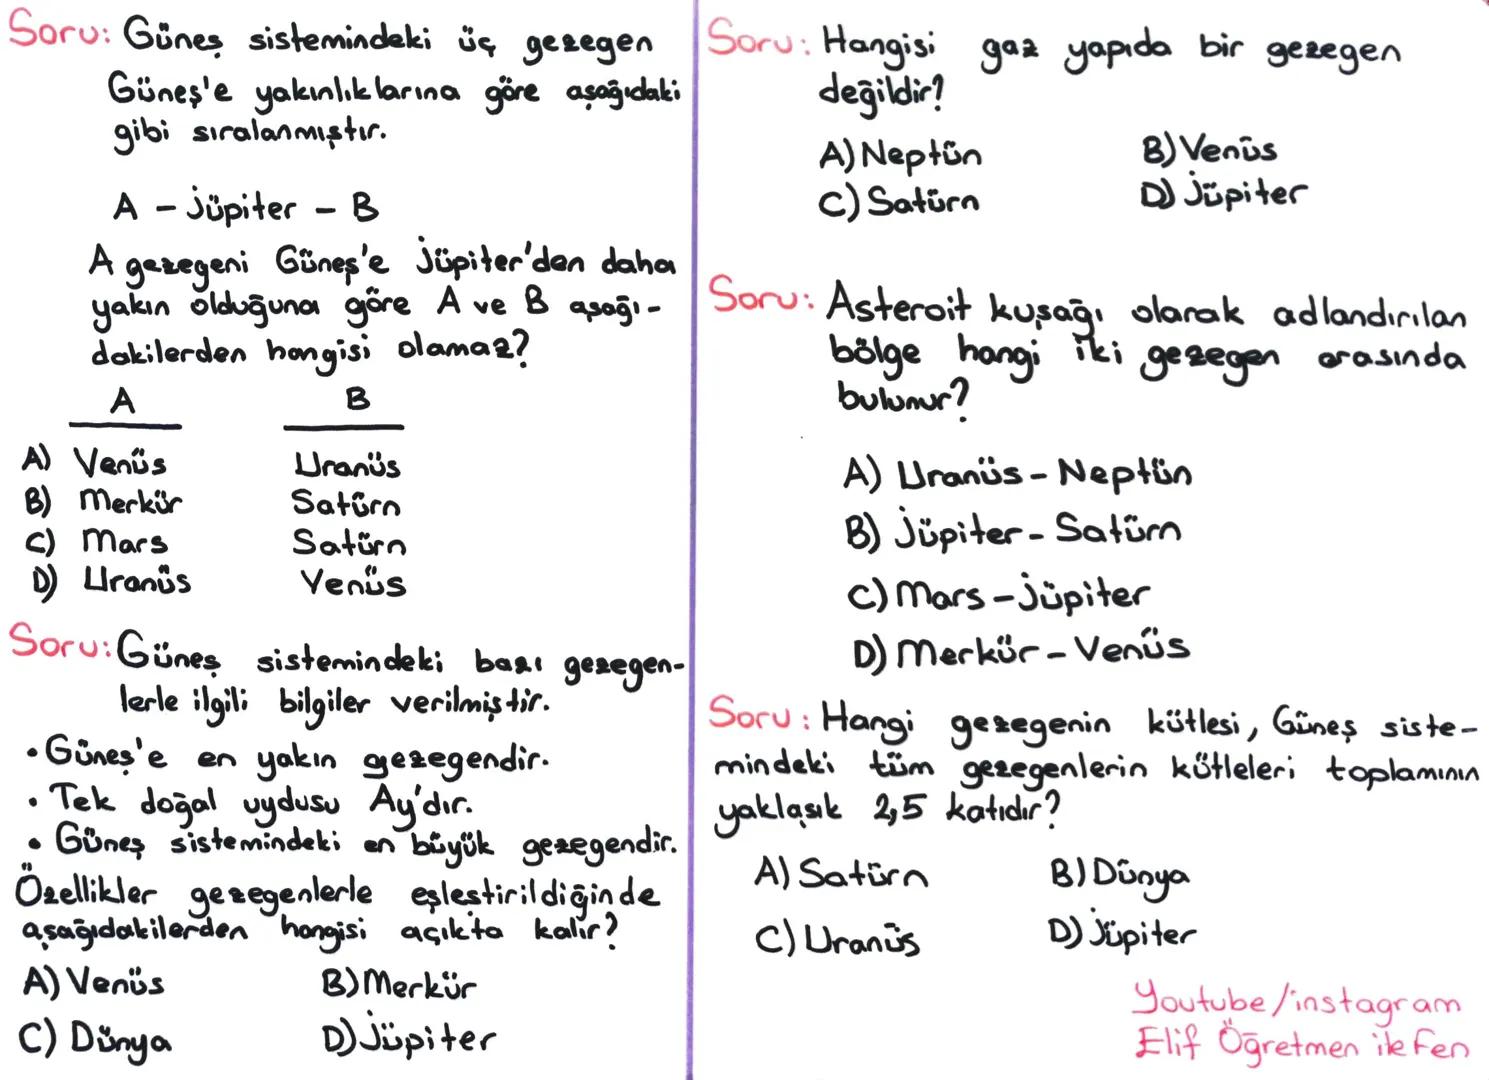 Soru: Güneş sistemindeki üç gezegen
Güneş'e yakınlıklarına göre aşağıdaki
gibi sıralanmıştır.
A - Jüpiter - B
A gezegeni Güneş'e Jüpiter'den daha
yakın olduğuna göre A ve B aşağı-
dakilerden hangisi olamaz?
A B
A) Venüs Uranüs
B) Merkür Satürn
C) Mars Satürn
D) Uranüs Venüs
Soru: Güneş sistemindeki bazı gezegen-
lerle ilgili bilgiler verilmiştir.
• Güneş'e en yakın gezegendir.
• Tek doğal uydusu Ay'dır.
• Güneş sistemindeki en büyük gezegendir.
Özellikler gezegenlerle eşleştirildiğinde
aşağıdakilerden hangisi açıkta kalır?
A) Venüs B) Merkür
C) Dünya D) Jüpiter
Soru: Hangisi gaz yapıda bir gezegen
değildir?
A) Neptün B) Venüs
C) Satürn D) Jüpiter
Soru: Asteroit kuşağı olarak adlandırılan
bölge hangi iki gezegen arasında
bulunur?
A) Uranüs - Neptün
B) Jüpiter - Satürn
C) Mars - Jüpiter
D) Merkür - Venüs
Soru: Hangi gezegenin kütlesi, Güneş siste-
mindeki tüm gezegenlerin kütleleri toplamının
yaklaşık 2,5 katıdır?
A) Satürn B) Dünya
C) Uranüs D) Jüpiter
Youtube/instagram
Elif Öğretmen ile Fen